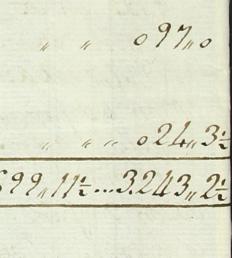 〃 〃 097〃0
〃 〃 〃 024〃3½
699〃11½...3.243〃2½